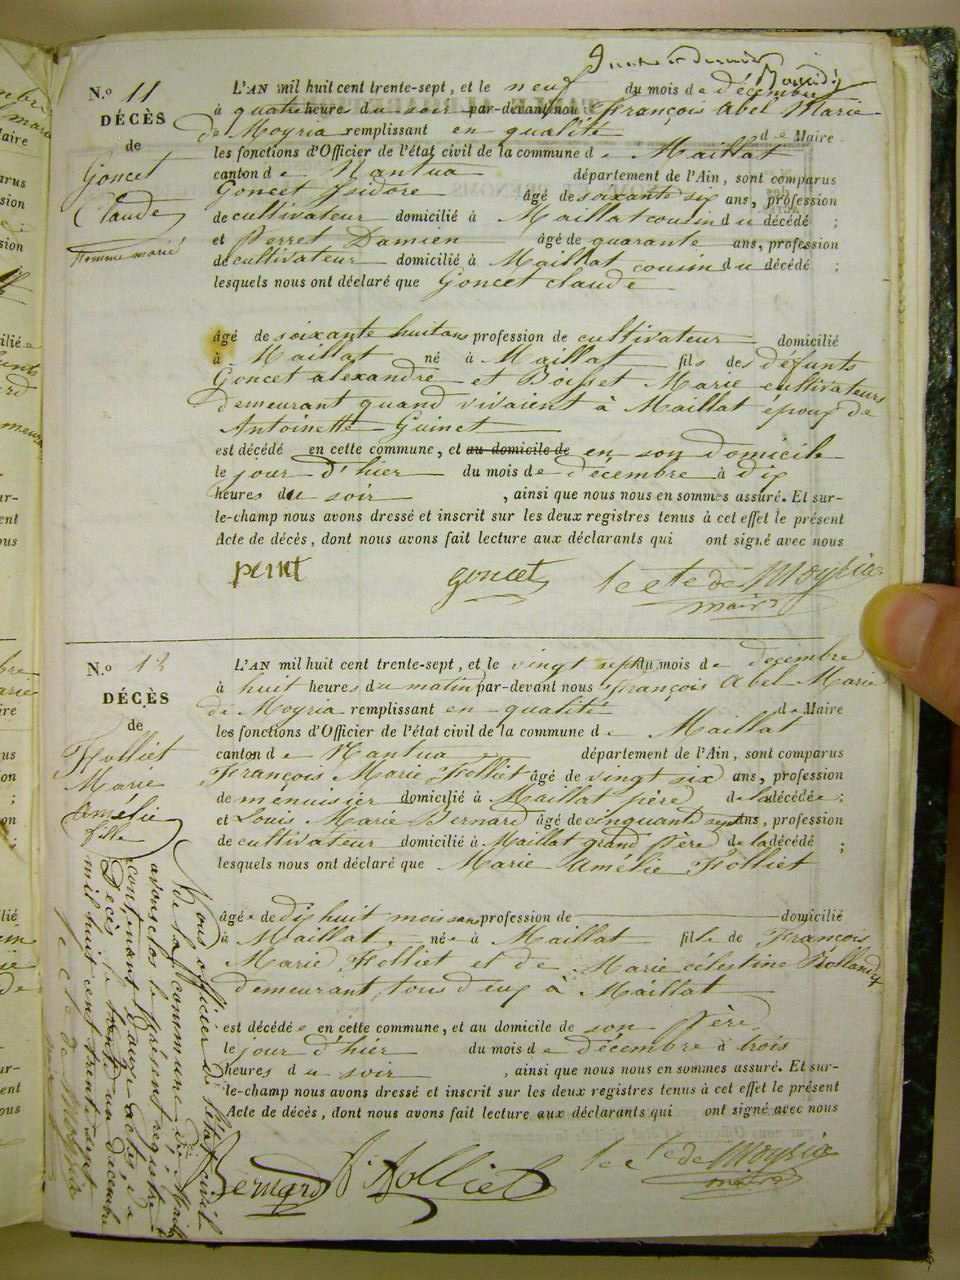 N.º 11
DÉCÈS
de
Goncet
Claude
homme marié
L'AN mil huit cent trente-sept, et le neuf du mois de décembre
à quatre heures du soir par-devant nous françois Abel Marie
De Moyria remplissant en qualité de Maire
les fonctions d'Officier de l'état civil de la commune de Maillat
canton de Nantua département de l'Ain, sont comparus
Goncet Isidore âgé de soixante six ans, profession
de cultivateur domicilié à Maillat cousin du décédé ;
et Perret Damien âgé de quarante ans, profession
de cultivateur domicilié à Maillat cousin du décédé ;
lesquels nous ont déclaré que Goncet claude
âgé de soixante huit ans profession de cultivateur domicilié
à Maillat né à Maillat fils des défunts
Goncet alexandre et Boisset Marie cultivateurs
demeurant quand vivaient à Maillat époux de
Antoinette Guinet
est décédé en cette commune, et au domicile de en son domicile
le jour d'hier du mois de décembre à dix
heures du soir , ainsi que nous nous en sommes assuré. Et sur-
le-champ nous avons dressé et inscrit sur les deux registres tenus à cet effet le présent
Acte de décès, dont nous avons fait lecture aux déclarants qui ont signé avec nous
perret goncet le cte de Moyria
maire
N.º 12
DÉCÈS
de
Folliet
Marie
Amélie
fille
L'AN mil huit cent trente-sept, et le vingt sept du mois de decembre
à huit heures du matin par-devant nous françois Abel Marie
de Moyria remplissant en qualité de Maire
les fonctions d'Officier de l'état civil de la commune de Maillat
canton de Nantua département de l'Ain, sont comparus
François Marie Folliet âgé de vingt six ans, profession
de menuisier domicilié à Maillat père de la décédée ;
et Louis Marie Bernard âgé de cinquante sept ans, profession
de cultivateur domicilié à Maillat grand père de la décédé ;
lesquels nous ont déclaré que Marie Amélie Folliet
âgée de dix huit mois ans profession de domicilié
à Maillat, née à Maillat fille de François
Marie Folliet et de Marie célestine Rolland
demeurant tous deux à Maillat
est décédée en cette commune, et au domicile de son Père
le jour d'hier du mois de décembre à trois
heures du soir , ainsi que nous nous en sommes assuré. Et sur-
le-champ nous avons dressé et inscrit sur les deux registres tenus à cet effet le présent
Acte de décès, dont nous avons fait lecture aux déclarants qui ont signé avec nous
Bernard Folliet le cte de Moyria
maire
Nous officier de l'état civil
de la commune de Maillat
avons clos le présent registre
contenant Douze actes de
Décès le trente un décembre
mil huit cent trente sept
le cte de Moyria